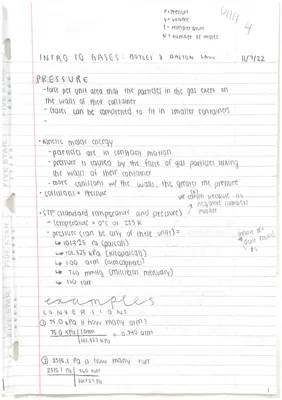 P = Pressure
V = volume
T = temperature
N = number of moles
unit 4
INTRO TO GASES: BOYLES & DALTON LAW 11/7/22
PRESSURE
- force per unit area that the particles in the gas exert on
the walls of their container
- Gases can be compressed to fit in smaller containers
-
• Kinetic molar energy
- particles are in constant motion
- pressure is caused by the force of gas particles hitting
the walls of their container
- more collisions w/ the walls, the greater the pressure
• collisions = pressure
• STP (standard temperature and pressure)
- temperature = 0°C or 273 K
- pressure (can be any of these units) =
↳ 101325 Pa (pascals)
↳ 101.325 kPa (kilopascals)
↳ 1.00 atm (atmosphere)
↳ 760 mmHg (millimeters mercury)
↳ 760 torr
examples
CONVERSIONS
① 75.0 kPa is how many atm?
75.0 kPa | 1 atm = 0.740 atm
101.325 kPa
② 2515.1 Pa is how many torr
2515.1 Pa | 760 torr
101325 Pa